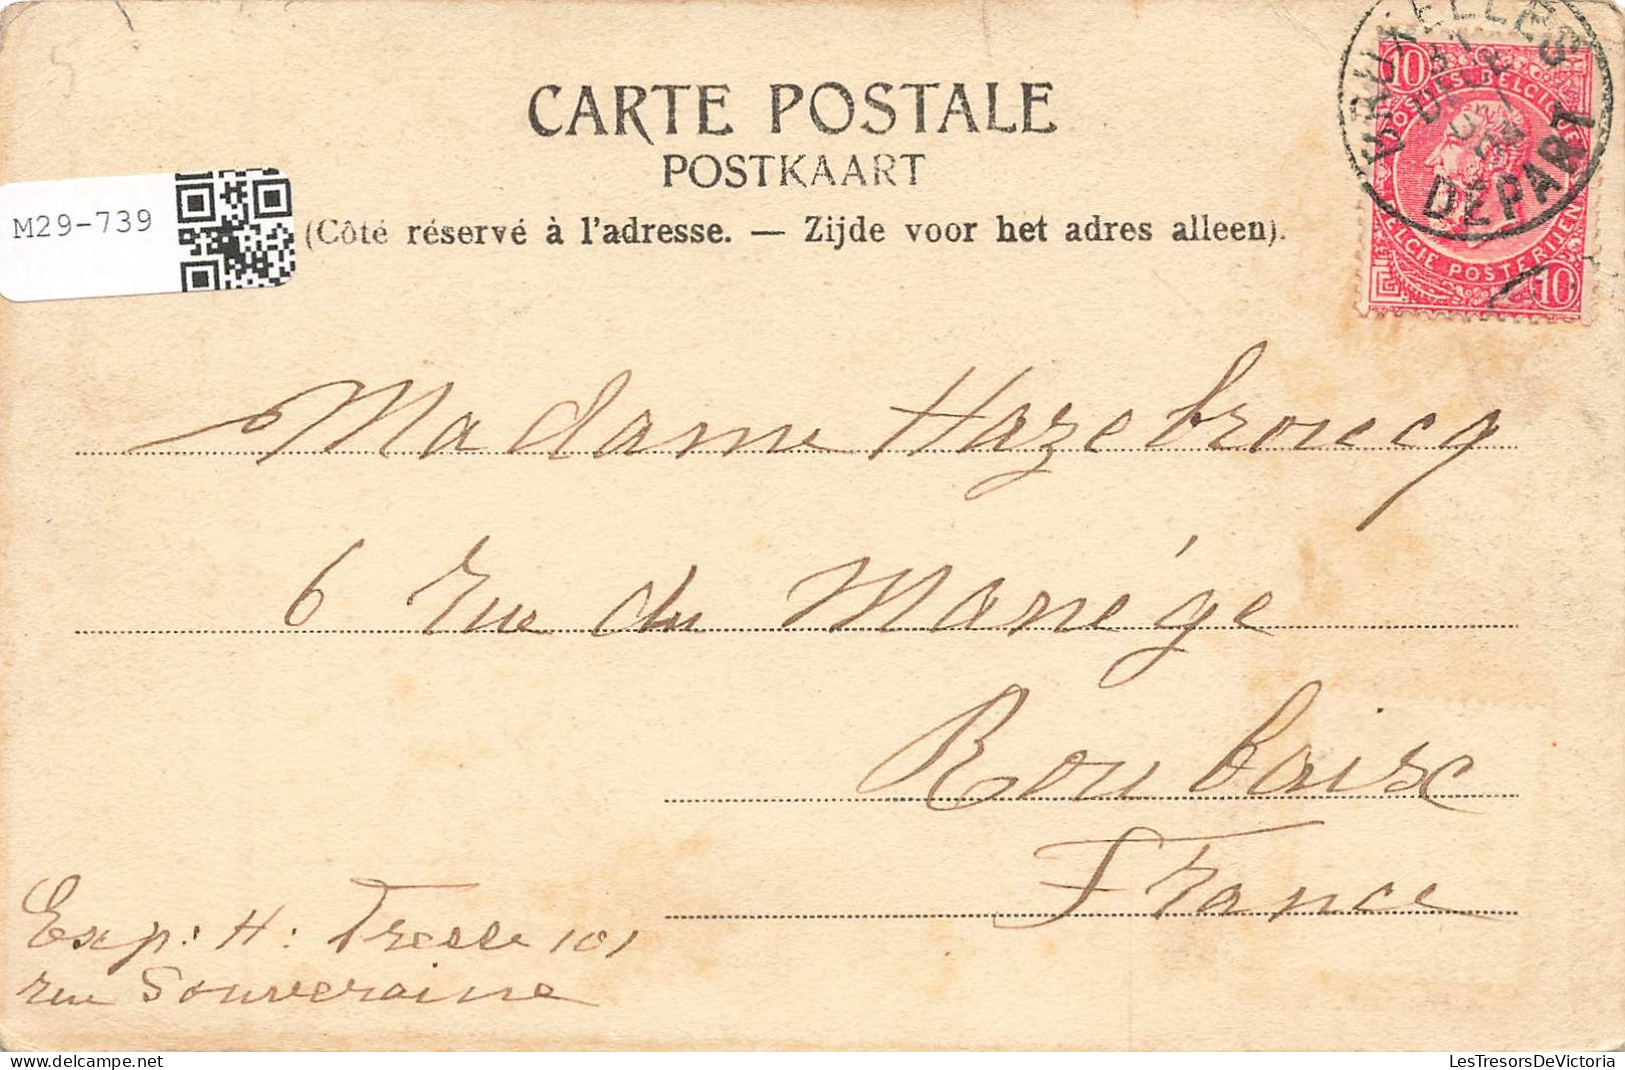 5
CARTE POSTALE
POSTKAART
(Côté réservé à l'adresse. — Zijde voor het adres alleen).
M29-739
BRUXELLES
DÉPART
10
POSTES BELGIQUE
BELGIE POSTERIJEN
10
Madame Hazebroucq
6 rue du Manége
Roubaix
France
Exp: H:
101
rue Souveraine
LesTresorsDeVictoria
https://www.delcampe.net/fr/collections/store/LesTresorsDeVictoria